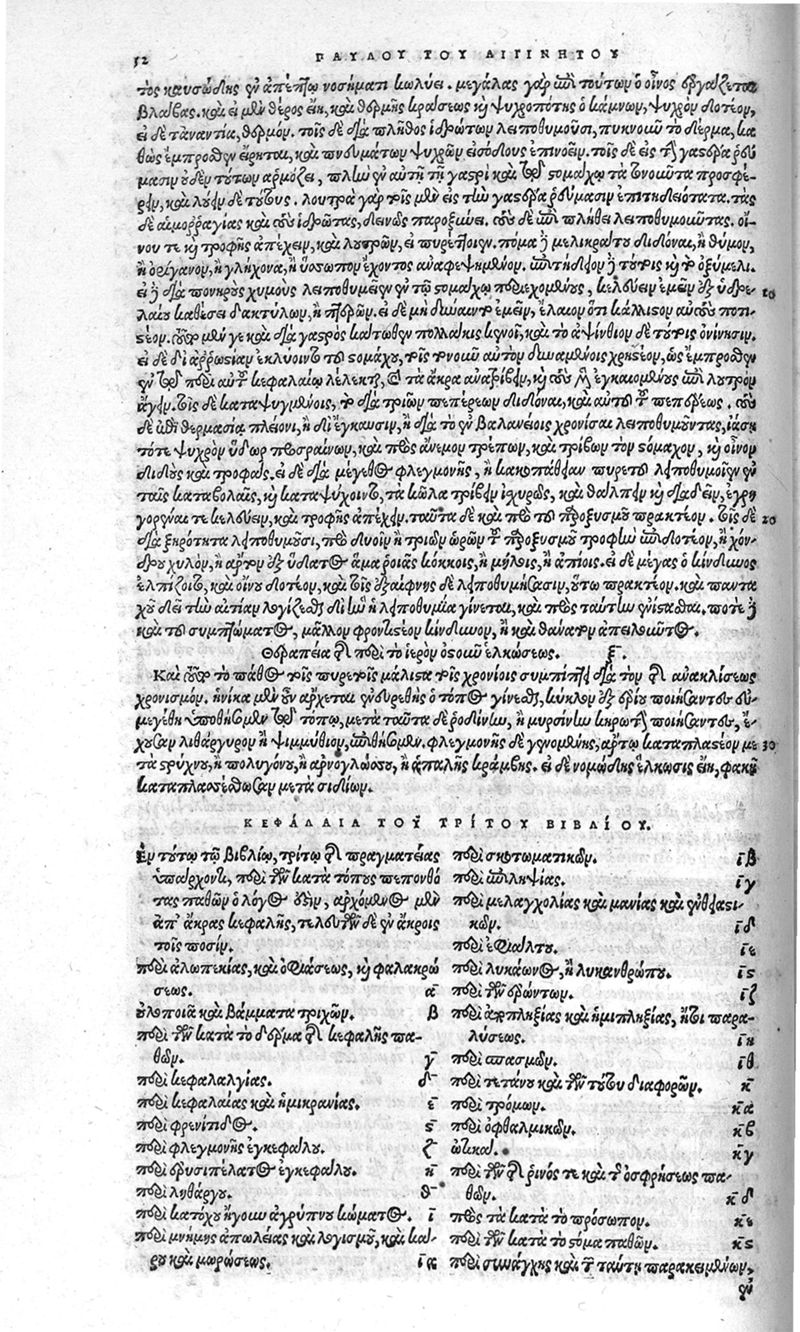 52 ΠΑΥΛΟΥ ΤΟΥ ΑΙΓΙΝΗΤΟΥ
τος καυσώδης ἐν ἀπέπτῳ νοσήματι κωλύει. μεγάλας γὰρ ἐπὶ τούτων ὁ οἶνος ἐργάζεται
βλάβας. καὶ εἰ μὲν θέρος εἴη, καὶ θερμῆς κράσεως καὶ ψυχροπότης ὁ κάμνων, ψυχρὸν δοτέον,
εἰ δὲ τἀναντία, θερμόν. τοῖς δὲ διὰ πλῆθος ἱδρώτων λειποθυμοῦσι, πυκνοῦν τὸ δέρμα, κα
θὼς ἔμπροσθεν εἴρηται, καὶ πνευμάτων ψυχρῶν εἰσόδους ἐπινοεῖν. τοῖς δὲ εἰς τὴν γαστέρα ῥεύ
μασιν οὐδὲν τούτων ἁρμόζει, πλὴν ἐν αὐτῇ τῇ γαστρὶ καὶ τῷ στομάχῳ τὰ τονοῦντα προσφέ
ρειν, καὶ λούειν δὲ τούτους. λουτρὰ γὰρ τοῖς μὲν εἰς τὴν γαστέρα ῥεύμασιν ἐπιτηδειότατα. τὰς
δὲ αἱμορραγίας καὶ τοὺς ἱδρῶτας, δεινῶς παροξύνει. τοὺς δὲ ἐπὶ πλήθει λειποθυμοῦντας, οἴ
νου τε καὶ τροφῆς ἀπέχειν, καὶ λουτρῶν, εἰ πυρέττοιεν. πόμα δὲ μελικράτου διδόναι, ἢ θύμον,
ἢ ὀρίγανον, ἢ γλήχονα, ἢ ὕσσωπον ἔχοντος ἀναφεψημένον. ἐπιτήδειον δὲ τούτοις καὶ τὸ ὀξύμελι.
εἰ δὲ διὰ πονηροὺς χυμοὺς λειποθυμεῖεν ἐν τῷ στομάχῳ περιεχομένους, κελεύειν ἐμεῖν ἐξ ὑδρε- 10
λαίου καθέσει δακτύλων, ἢ πτερῶν. εἰ δὲ μὴ δύναιντο ἐμεῖν, ἔλαιον ὅτι κάλλιστον αὐτοὺς ποτι-
στέον. τοῦτο μέν γε καὶ διὰ γαστρὸς κάτωθεν πολλάκις κενοῖ, καὶ τὸ ἀψίνθιον δὲ τούτοις ὀνίνησιν.
εἰ δὲ δι' ἀρρωστίαν ἐκλύοιντο τοῦ στομάχου, τοῖς τονοῦν αὐτὸν δυναμένοις χρηστέον, ὡς ἔμπροσθεν
ἐν τῷ περὶ αὐτοῦ κεφαλαίῳ λέλεκται,
ἄγειν. τοῖς δὲ καταψυγμένοις, τὸ διὰ τριῶν πεπέρεων διδόναι, καὶ αὐτὸ τὸ πέπερεως. τοὺς
δὲ ἐπὶ θερμασίᾳ πλέονι, ἢ δι' ἔγκαυσιν, ἢ διὰ τὸ ἐν βαλανείοις χρονίσαι λειποθυμοῦντας, ἰάσῃ
τότε ψυχρὸν ὕδωρ προσραίνων, καὶ πρὸς ἄνεμον τρέπων, καὶ τρίβων τὸν στόμαχον, καὶ οἶνον
διδοὺς καὶ τροφάς. εἰ δὲ διὰ μέγεθος φλεγμονῆς, ἢ κακοήθειαν πυρετοῦ λειποθυμοῖεν ἐν
ταῖς καταβολαῖς, καὶ καταψύχοιντο, τὰ κῶλα τρίβειν ἰσχυρῶς, καὶ θάλπειν καὶ διαδεῖν, ἐγρη
γορέναι τε κελεύειν, καὶ τροφῆς ἀπέχειν. ταῦτα δὲ καὶ πρὸ τοῦ παροξυσμοῦ πρακτέον. τοῖς δὲ 20
διὰ ξηρότητα λειποθυμοῦσι, πρὸ δυοῖν ἢ τριῶν ὡρῶν τοῦ παροξυσμοῦ τροφὴν ἐπιδοτέον, ἢ χόν-
δρου χυλὸν, ἢ ἄρτον ἐξ ὕδατος ἅμα ῥοιᾶς κόκκοις, ἢ μήλοις, ἢ ἀπίοις. εἰ δὲ μέγας ὁ κίνδυνος
ἐλπίζοιτο, καὶ οἴνου δοτέον, καὶ τοῖς ἐξαίφνης δὲ λειποθυμήσασιν, οὕτω πρακτέον. καὶ πανταχ
οῦ δεῖ τὴν αἰτίαν λογίζεσθαι δι' ἣν ἡ λειποθυμία γίνεται, καὶ πρὸς ταύτην ἐνίστασθαι. ποτὲ δὲ
καὶ τοῦ συμπτώματος, μᾶλλον φροντιστέον κίνδυνον, ἢ καὶ θάνατον ἀπειλοῦντος.
Θεραπεία τῆς περὶ τὸ ἱερὸν ὀστοῦν ἑλκώσεως. ξ.
Καὶ τοῦτο τὸ πάθος τοῖς πυρετοῖς μάλιστα τοῖς χρονίοις συμπίπτει διὰ τὸν τῆς ἀνακλίσεως
χρονισμόν. ἡνίκα μὲν οὖν ἄρχεται ἐνερευθὴς ὁ τόπος γίνεσθαι, κύκλον ἐξ ἐρίου ποιήσαντες συ-
μεγέθη ὑποθήσομεν τῷ τόπῳ, μετὰ ταῦτα δὲ ῥοδίνην, ἢ μυρσίνην κηρωτὴν ποιήσαντες, ἔ-
χουσαν λιθάργυρον ἢ ψιμμύθιον, ἐπιθήσομεν. φλεγμονῆς δὲ γενομένης, ἄρτῳ καταπλαστέον με 30
τὰ στρύχνου, ἢ πολυγόνου, ἢ ἀρνογλώσσου, ἢ ἁπαλῆς κράμβης. εἰ δὲ νομώδης ἕλκωσις εἴη, φακῇ
καταπλασσέσθωσαν μετὰ σιδίων.
ΚΕΦΑΛΑΙΑ ΤΟΥ ΤΡΙΤΟΥ ΒΙΒΛΙΟΥ.
Ἐν τούτῳ τῷ βιβλίῳ, τρίτῳ τῆς πραγματείας
ὑπάρχοντι, περὶ τῶν κατὰ τόπους πεπονθό
τας παθῶν ὁ λόγος ἐστὶν, ἀρχόμενος μὲν
ἀπ' ἄκρας κεφαλῆς, τελευτῶν δὲ ἐν ἄκροις
τοῖς ποσίν.
περὶ ἀλωπεκίας, καὶ ὀφιάσεως, καὶ φαλακρώ
σεως. α
οὐλοποιὰ καὶ βάμματα τριχῶν. β
περὶ τῶν κατὰ τὸ δέρμα τῆς κεφαλῆς πα-
θῶν. γ
περὶ κεφαλαλγίας. δ
περὶ κεφαλαίας καὶ ἡμικρανίας. ε
περὶ φρενίτιδος. ς
περὶ φλεγμονῆς ἐγκεφάλου. ζ
περὶ ἐρυσιπέλατος ἐγκεφάλου. η
περὶ ληθάργου. θ
περὶ κατόχου ἤγουν ἀγρύπνου κώματος. ι
περὶ μνήμης ἀπωλείας καὶ λογισμοῦ, καὶ κά-
ρου καὶ μωρώσεως. ια
περὶ σκοτωματικῶν. ιβ
περὶ ἐπιληψίας. ιγ
περὶ μελαγχολίας καὶ μανίας καὶ ἐνθεαστι-
κῶν. ιδ
περὶ ἐφιάλτου. ιε
περὶ λυκάωνος, ἢ λυκανθρώπου. ις
περὶ τῶν ἐρώντων. ιζ
περὶ ἀποπληξίας καὶ ἡμιπληξίας, ἤτοι παρα-
λύσεως. ιη
περὶ σπασμῶν. ιθ
περὶ τετάνου καὶ τῶν τούτου διαφορῶν. κ
περὶ τρόμων. κα
περὶ ὀφθαλμικῶν. κβ
ὠτικαί. κγ
περὶ τῶν τῆς ῥινός τε καὶ τῆς ὀσφρήσεως πα-
θῶν. κδ
πρὸς τὰ κατὰ τὸ πρόσωπον. κε
περὶ τῶν κατὰ τὸ στόμα παθῶν. κς
περὶ συνάγχης καὶ τῶν ταύτῃ παρακειμένων,
ἐν